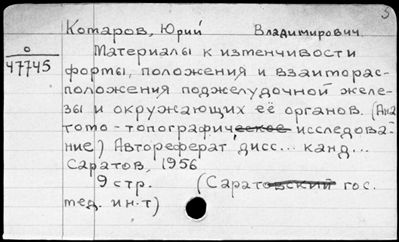 5
Котаров, Юрий Владимирович.
О
47745
Материалы к изтенчивости
форты, положения и взаиторас-
положения поджелудочной желе-
зы и окружающих её органов. (Ана
тото-топографическое исследова-
ние) Автореферат дисс... канд...
Саратов, 1956
9 стр. (Саратовский гос.
тед. ин-т)